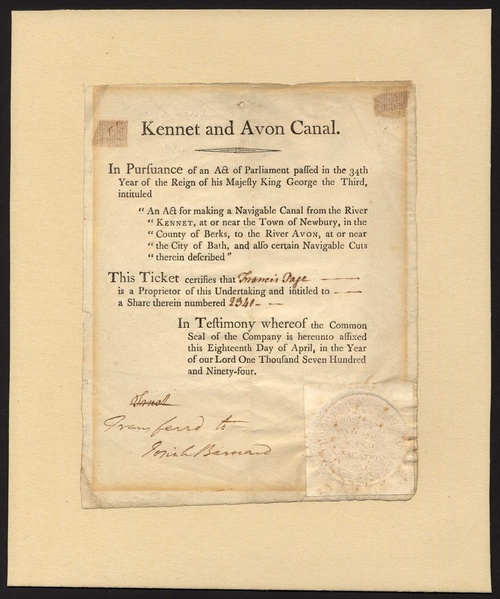 Kennet and Avon Canal.
In Purſuance of an Act of Parliament paſſed in the 34th
Year of the Reign of his Majeſty King George the Third,
intituled
“ An Act for making a Navigable Canal from the River
“ KENNET, at or near the Town of Newbury, in the
“ County of Berks, to the River AVON, at or near
“ the City of Bath, and alſo certain Navigable Cuts
“ therein deſcribed”
This Ticket certifies that Francis Page
is a Proprietor of this Undertaking and intitled to
a Share therein numbered 2341
In Teſtimony whereof the Common
Seal of the Company is hereunto affixed
this Eighteenth Day of April, in the Year
of our Lord One Thouſand Seven Hundred
and Ninety-four.
Trust
Transferrd to
Josiah Barnard